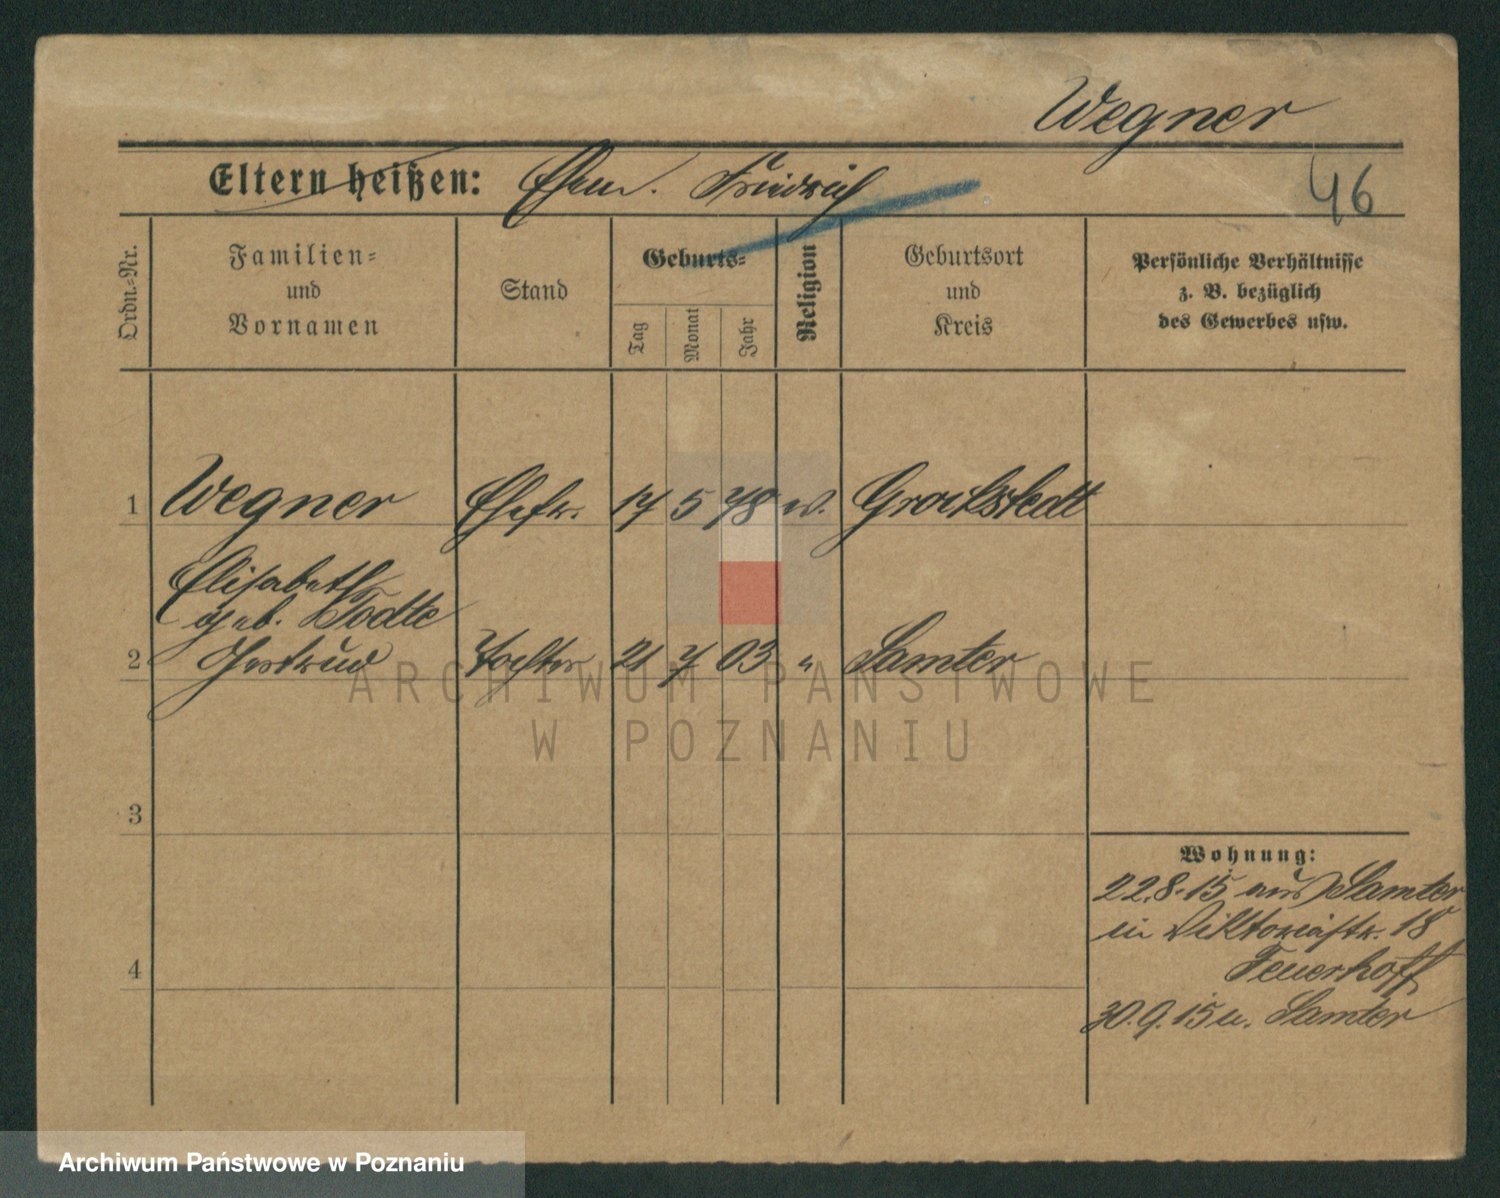 Wegner
46
Eltern heißen: Ehem. Friedrich
Ordn.-Nr.
Familien-
und
Vornamen
Stand
Geburts-
Tag
Monat
Jahr
Religion
Geburtsort
und
Kreis
Persönliche Verhältnisse
z. B. bezüglich
des Gewerbes usw.
1 Wegner Ehefr. 17 5 78 ev. Grockstedt
Elisabeth
geb. Todte
2 Gertrud Tochter 21 7 03 " Samter
3
4
Wohnung:
22.8.15 aus Samter
in Viktoriastr. 18
Feuerhoff
30.9.15 n. Samter
ARCHIWUM PAŃSTWOWE
W POZNANIU
Archiwum Państwowe w Poznaniu